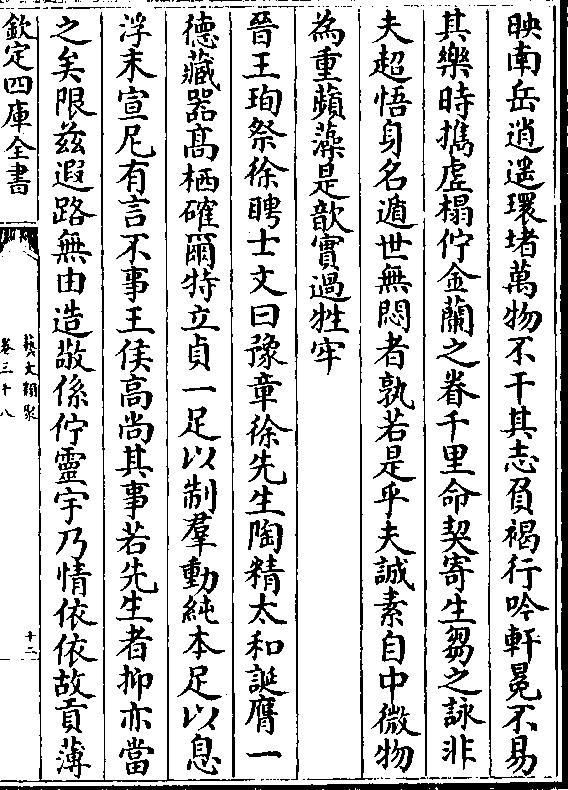 映南岳逍遥環堵萬物不干其志負褐行吟軒冕不易
其樂時攜虚榻佇金蘭之眷千里命契寄生芻之詠非
夫超悟身名遁世無悶者孰若是乎夫誠素自中微物
為重蘋藻是歆實過牲牢
晉王珣祭徐聘士文曰豫章徐先生陶精太和誕膺一
德藏器高栖確爾特立貞一足以制羣動純本足以息
浮末宣尼有言不事王侯高尚其事若先生者抑亦當
之矣限兹遐路無由造敬係佇靈宇乃情依依故貢薄
欽定四庫全書
藝文類聚
卷三十八
十二